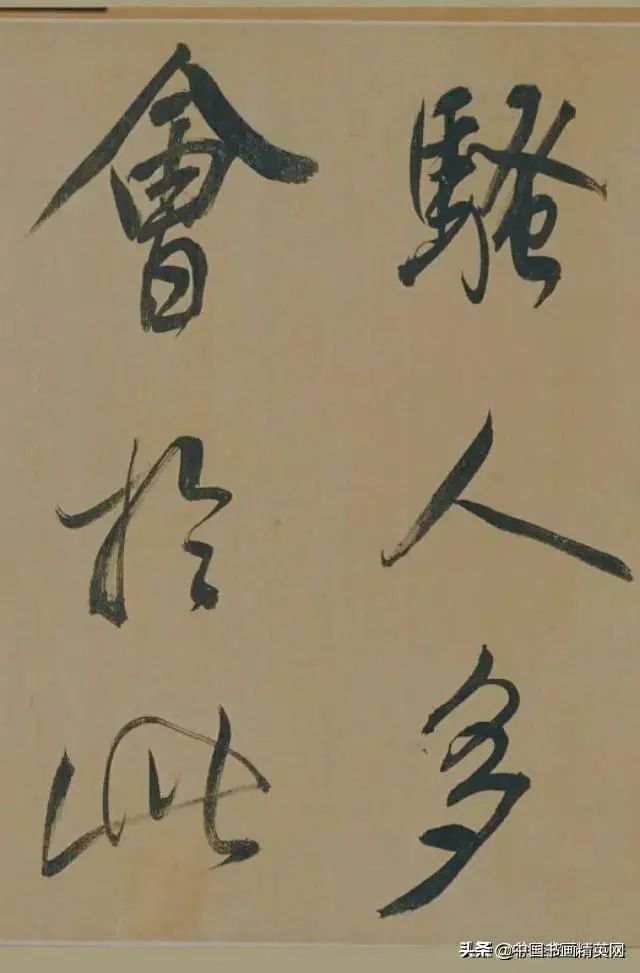 騷人多
會於此
头条 @中国书画精英网